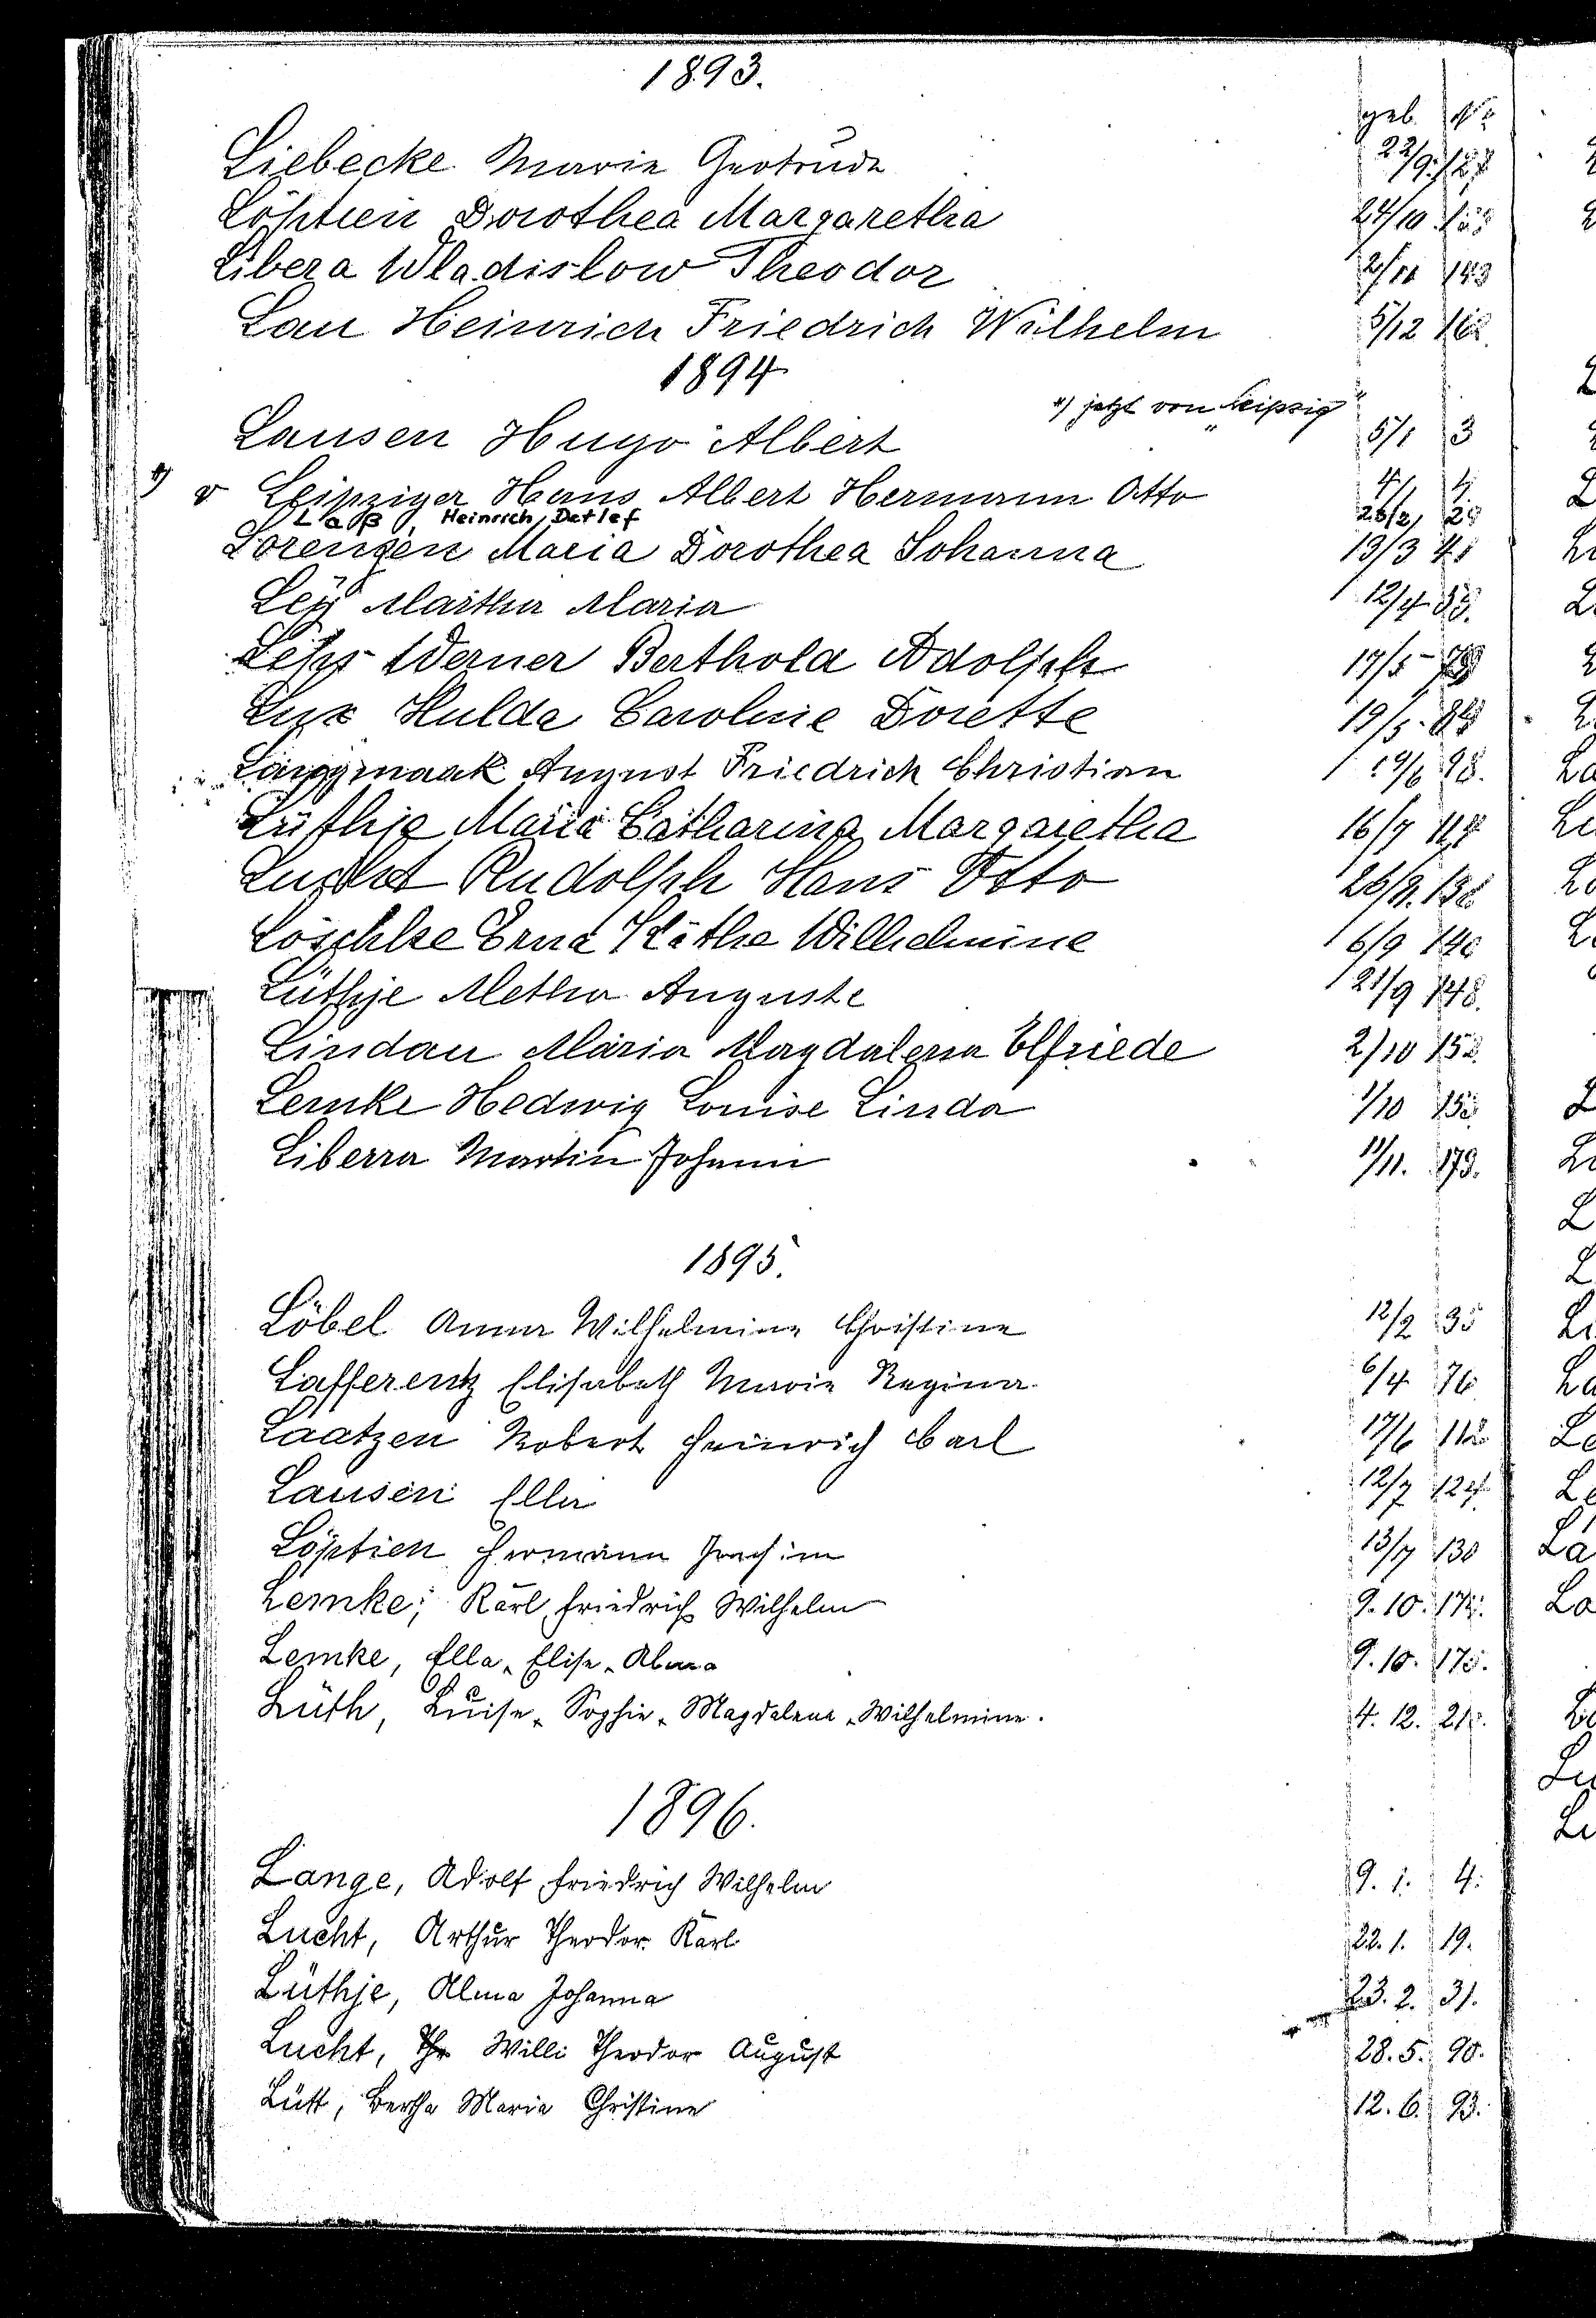 1893.
geb. No
Liebecke Marie Gertrude 22/9.
Löptien Dorothea Margaretha 24/10
Libera Wladislow Theodor 2/11 143
Lau Heinrich Friedrich Wilhelm 5/12 162.
1894
*) jetzt von „Leipzig"
Lausen Hugo Albert 5/1 3
*) v Leipziger Hans Albert Hermann Otto 4/1 4
Laß, Heinrich, Detlef 26/2,
Lorenzen Maria Dorothea Johanna 19/3
Ley Martha Maria 12/4
Werner Berthold Adolph 17/5 -
Lux Hulda Caroline Dorette 19/5.
Langmaak August Friedrich Christian 98.
Lüthje Maria Catharina Margaretha 16/7
Lucht Rudolph Hans Otto
Löschke Erna Käthe Wilhelmine 6/9 140
Lüthje Metha Auguste 21/9 148.
Lindau Maria Magdalena Elfriede 2/10 152.
Lemke Hedwig Louise Linda 1/10
Liberra Martin Johann 11/11. 179.
1895.
Löbel Anna Wilhelmine Christine 12/2 35
Lafferentz Elisabeth Marie Regina. 6/4 76
Laatzen Robert Heinrich Carl 17/6
Lausen Ella 12/7 124
Löptien Hermann Joachim 13/7 130
Lemke; Karl Friedrich Wilhelm 9. 10.
Lemke, Ella, Elise, Alma 9. 10.
Lüth, Luise, Sophie, Magdalena, Wilhelmine. 4. 12.
1896.
Lange, Adolf Friedrich Wilhelm 9. 1. 4.
Lucht, Arthur Theodor Karl 22. 1. 19.
Lüthje, Alma Johanna 23. 2. 31.
Lucht, Thr Willi Theodor August 28. 5. 90.
Lütt, Bertha Maria Christine 12. 6. 93.